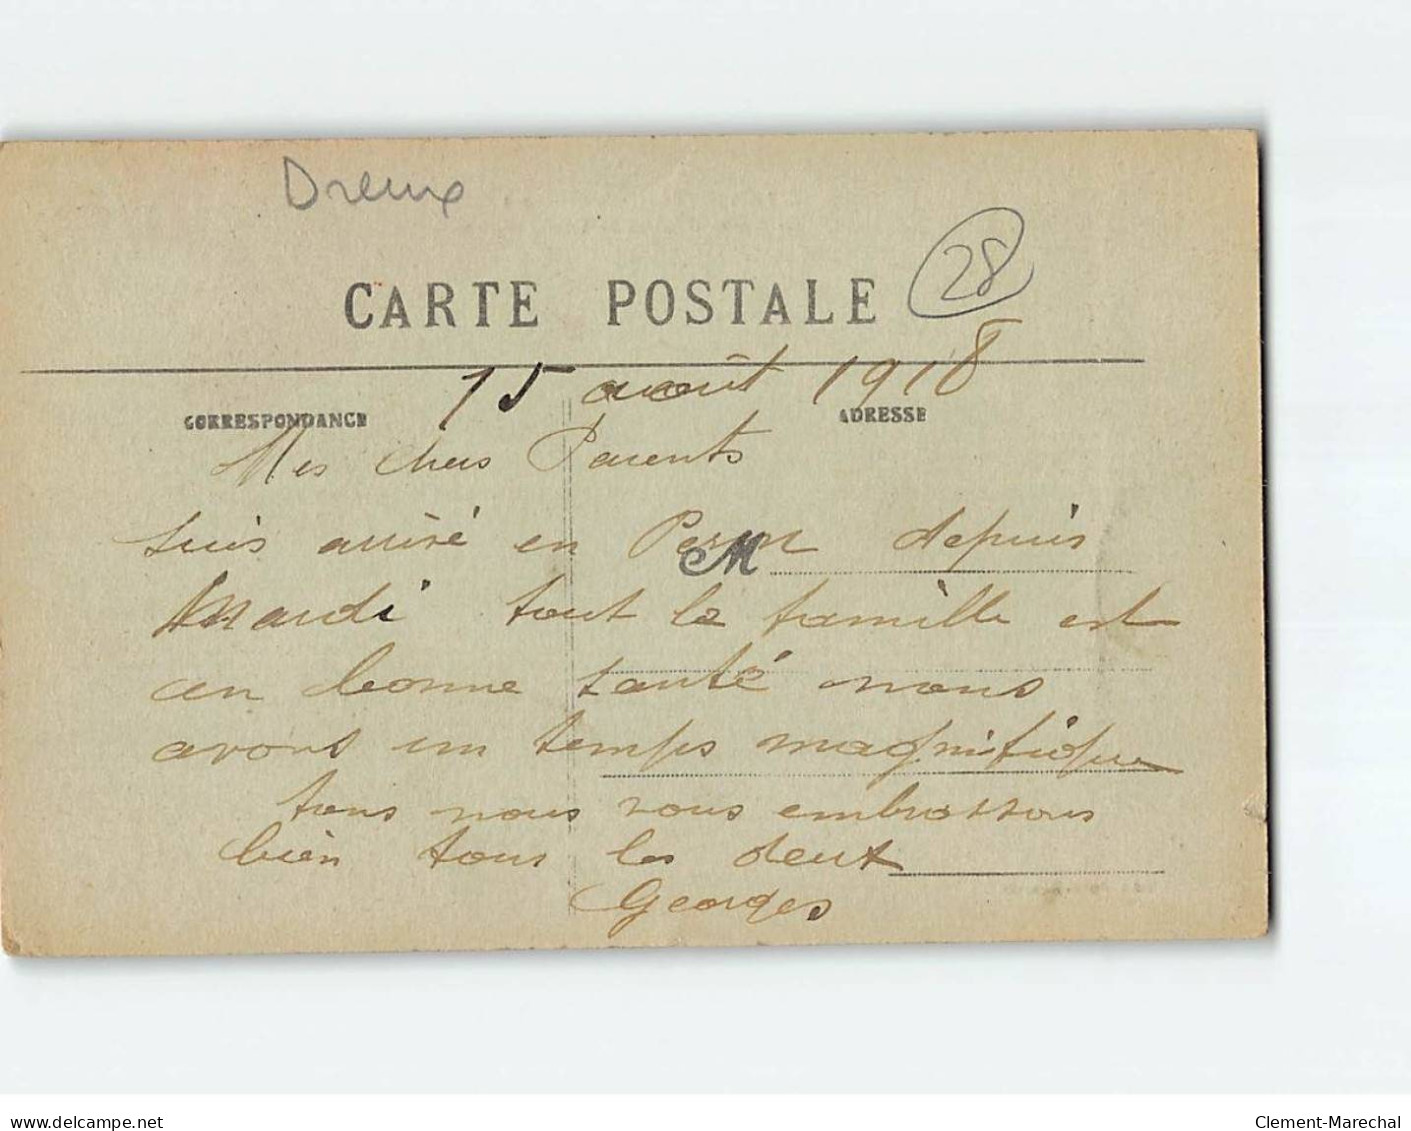 Dreux
28
CARTE POSTALE
15 août 1918
CORRESPONDANCE
ADRESSE
Mes chers Parents
suis arrivé en Perm depuis
M
Mardi tout la famille est
en bonne santé nous
avons un temps magnifique
tous nous vous embrassons
bien tous les deux
Georges
www.delcampe.net
Clement-Marechal